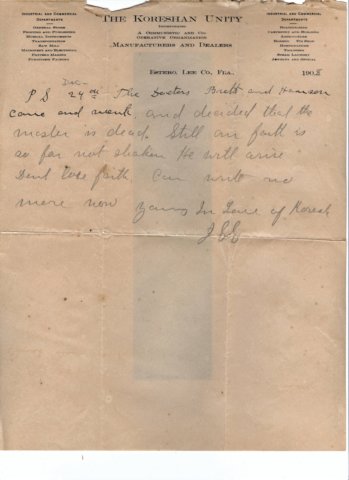 INDUSTRIAL AND COMMERCIAL
DEPARTMENTS
GENERAL STORE
PRINTING AND PUBLISHING
TRANSPORTATION
SAW MILL
MACHINERY AND
PATTERN MAKING
THE KORESHAN UNITY
INCORPORATED
A COMMUNISTIC AND CO-
OPERATIVE ORGANIZATION
MANUFACTURERS AND DEALERS
INDUSTRIAL AND COMMERCIAL
DEPARTMENTS
CARPENTRY AND BUILDING
STEAM LAUNDRY
ESTERO, LEE CO., FLA. 1908
Dec
P S 24 The Doctors and
came and went, and decided that the
master is dead. Still our faith is
so far not shaken He will arise
Dont lose faith. Can write no
more now Yours In Love of Koresh